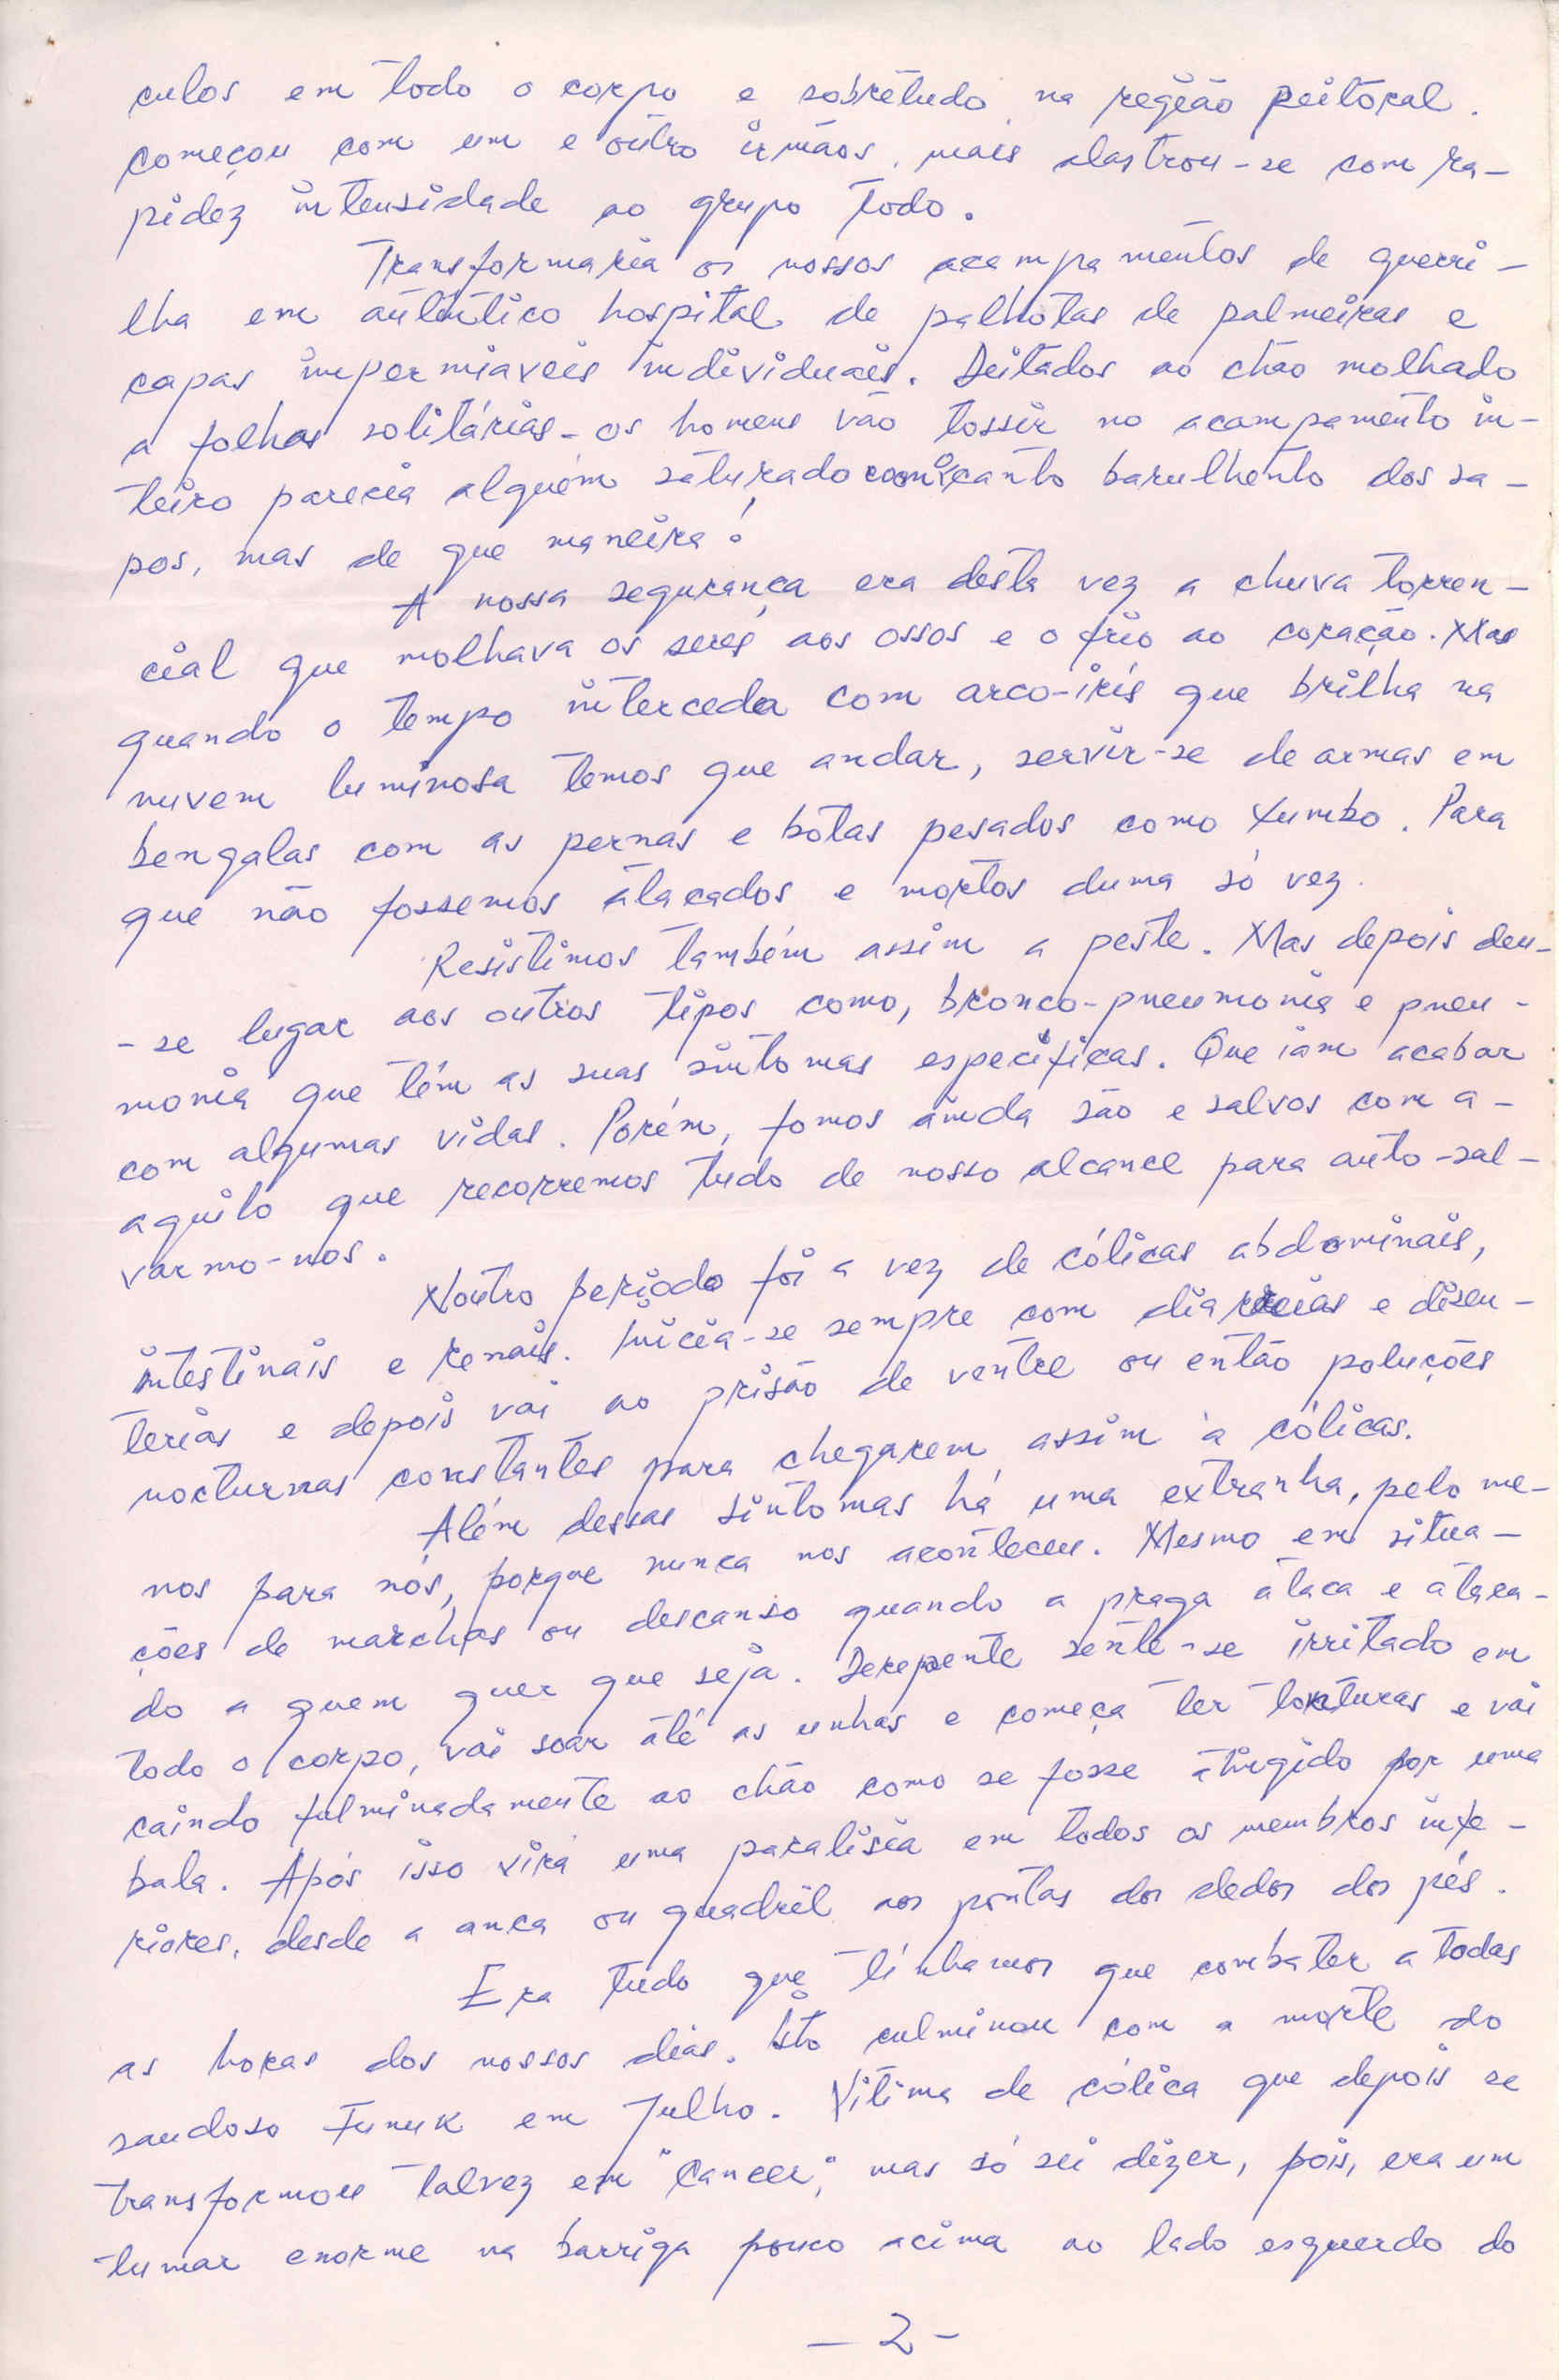 culos em todo o corpo e sobretudo na região peitoral.
começou com um e outro irmãos, mais alastrou-se com ra-
pidez intensidade ao grupo todo.
Transformaria os nossos acampamentos de guerri-
lha em autêntico hospital de palhotas de palmeiras e
capas impermiaveis individuais. Deitados ao chão molhado
a folhas solitárias - os homens vão tossir no acampamento in-
teiro parecia alguém saturado com canto barulhento dos sa-
pos, mas de que maneira!
A nossa segurança era desta vez a chuva torren-
cial que molhava os seres aos ossos e o frio ao coração. Mas
quando o tempo interceder com arco-iris que brilha na
nuvem luminosa temos que andar, servir-se de armas em
bengalas com as pernas e botas pesados como xumbo. Para
que não fossemos atacados e mortos duma só vez.
Resistimos também assim a peste. Mas depois deu-
-se lugar aos outros tipos como, bronco-pneumonia e pneu-
monia que têm as suas sintomas especificas. Que iam acabar
com algumas vidas. Porém, fomos ainda são e salvos com a-
aquilo que recorremos tudo de nosso alcance para auto-sal-
varmo-nos.
Noutro periodo foi a vez de cólicas abdominais,
intestinais e renais. Inicia-se sempre com diarreias e disen-
terias e depois vai ao prisão de ventre ou então poluções
nocturnas constantes para chegarem assim à cólicas.
Além dessas sintomas há uma extranha, pelo me-
nos para nós, porque nunca nos aconteceu. Mesmo em situa-
ções de marchas ou descanso quando a praga ataca e ataca-
do a quem quer que seja. Derepente sente-se irritado em
todo o corpo, vai soar até as unhas e começa ter tonturas e vai
caindo fulminadamente ao chão como se fosse atingido por uma
bala. Após isso virá uma paralisia em todos os membros infe-
riores, desde a anca ou quadril aos pontas dos dedos dos pés.
Era tudo que tínhamos que combater a todas
as horas dos nossos dias. Isto culminou com a morte do
saudoso Funuk em Julho. Vitima de cólica que depois se
transformou talvez em "cancer", mas só sei dizer, pois, era um
tumar enorme na barriga pouco acima ao lado esquerdo do
- 2 -